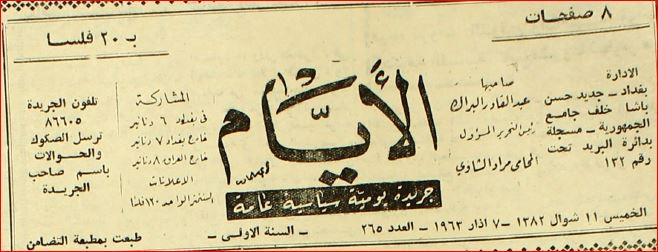 ٨ صفحات
بـ ٢٠ فلسا
الادارة
بغداد – جديد حسن
باشا خلف جامع
الجمهورية – مسجلة
بدائرة البريد تحت
رقم ١٣٢
صاحبها
عبدالقادر البراك
رئيس التحرير المسؤول
المحامي مراد الشاوي
الأيام
جريدة يومية سياسية عامة
المشاركة
في بغداد ٦ دنانير
خارج بغداد ٧ دنانير
خارج العراق ٨ دنانير
الاعلانات
السنتمتر الواحد ١٢٠ فلسا
تلفون الجريدة
٨٦٦٠٥
ترسل الصكوك
والحوالات
باسم صاحب
الجريدة
الخميس ١١ شوال ١٣٨٢ – ٧ اذار ١٩٦٣ – العدد ٢٦٥ – السنة الاولى – طبعت بمطبعة التضامن